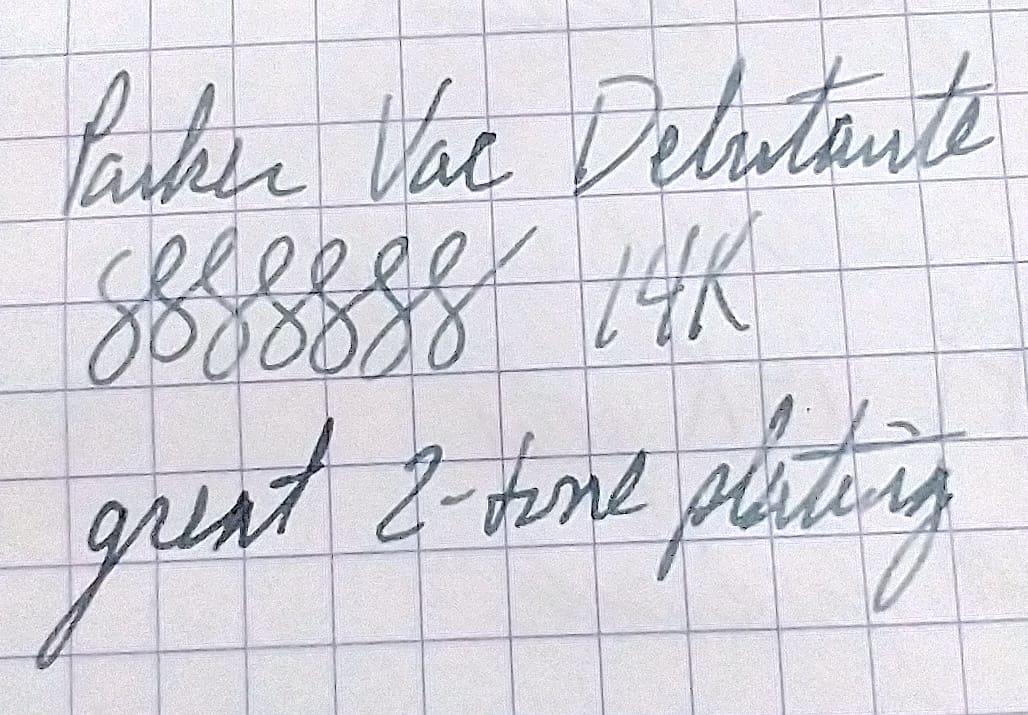 Parker Vac Debutante
8888888 14K
great 2-tone plating